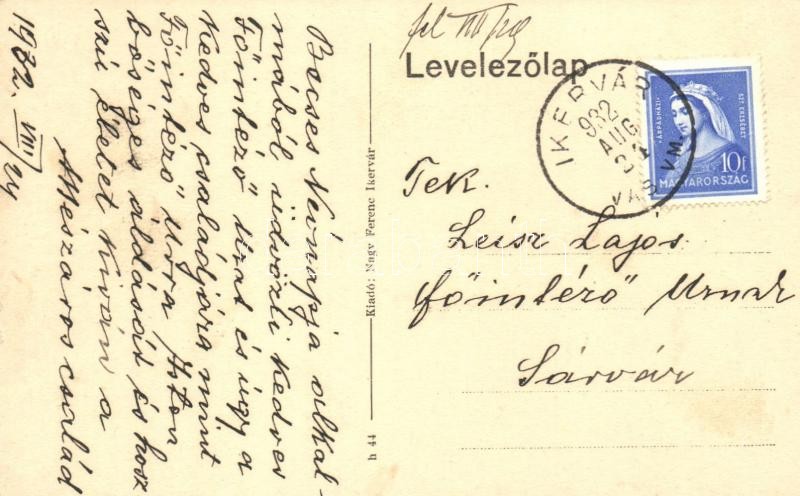 Levelezőlap
IKERVÁR
932
AUG
24
VAS VM.
ÁRPÁDHÁZI
SZT. ERZSÉBET
10f
MAGYARORSZÁG
Tek.
Leisz Lajós
főintéző Urnak
Sárvár
Kiadó: Nagy Ferenc Ikervár
h 44
Becses Nevónapja alkal-
mából üdvözli kedves
Főintéző Urat és úgy a
kedves családjára mint
Főintéző Urra Isten
bőséges áldását és hosz
szú életet kiván a
Mészáros család
1932. VIII/24